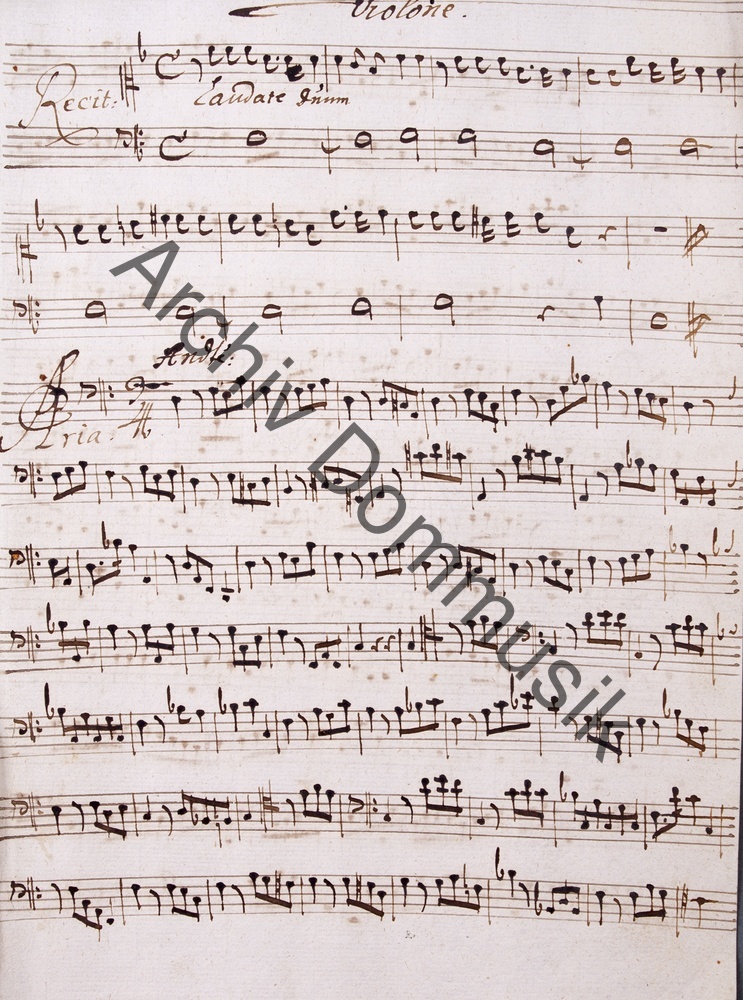 Violone.
Recit:
Laudate Dnum
Andte:
Aria.
Archiv Dommusik